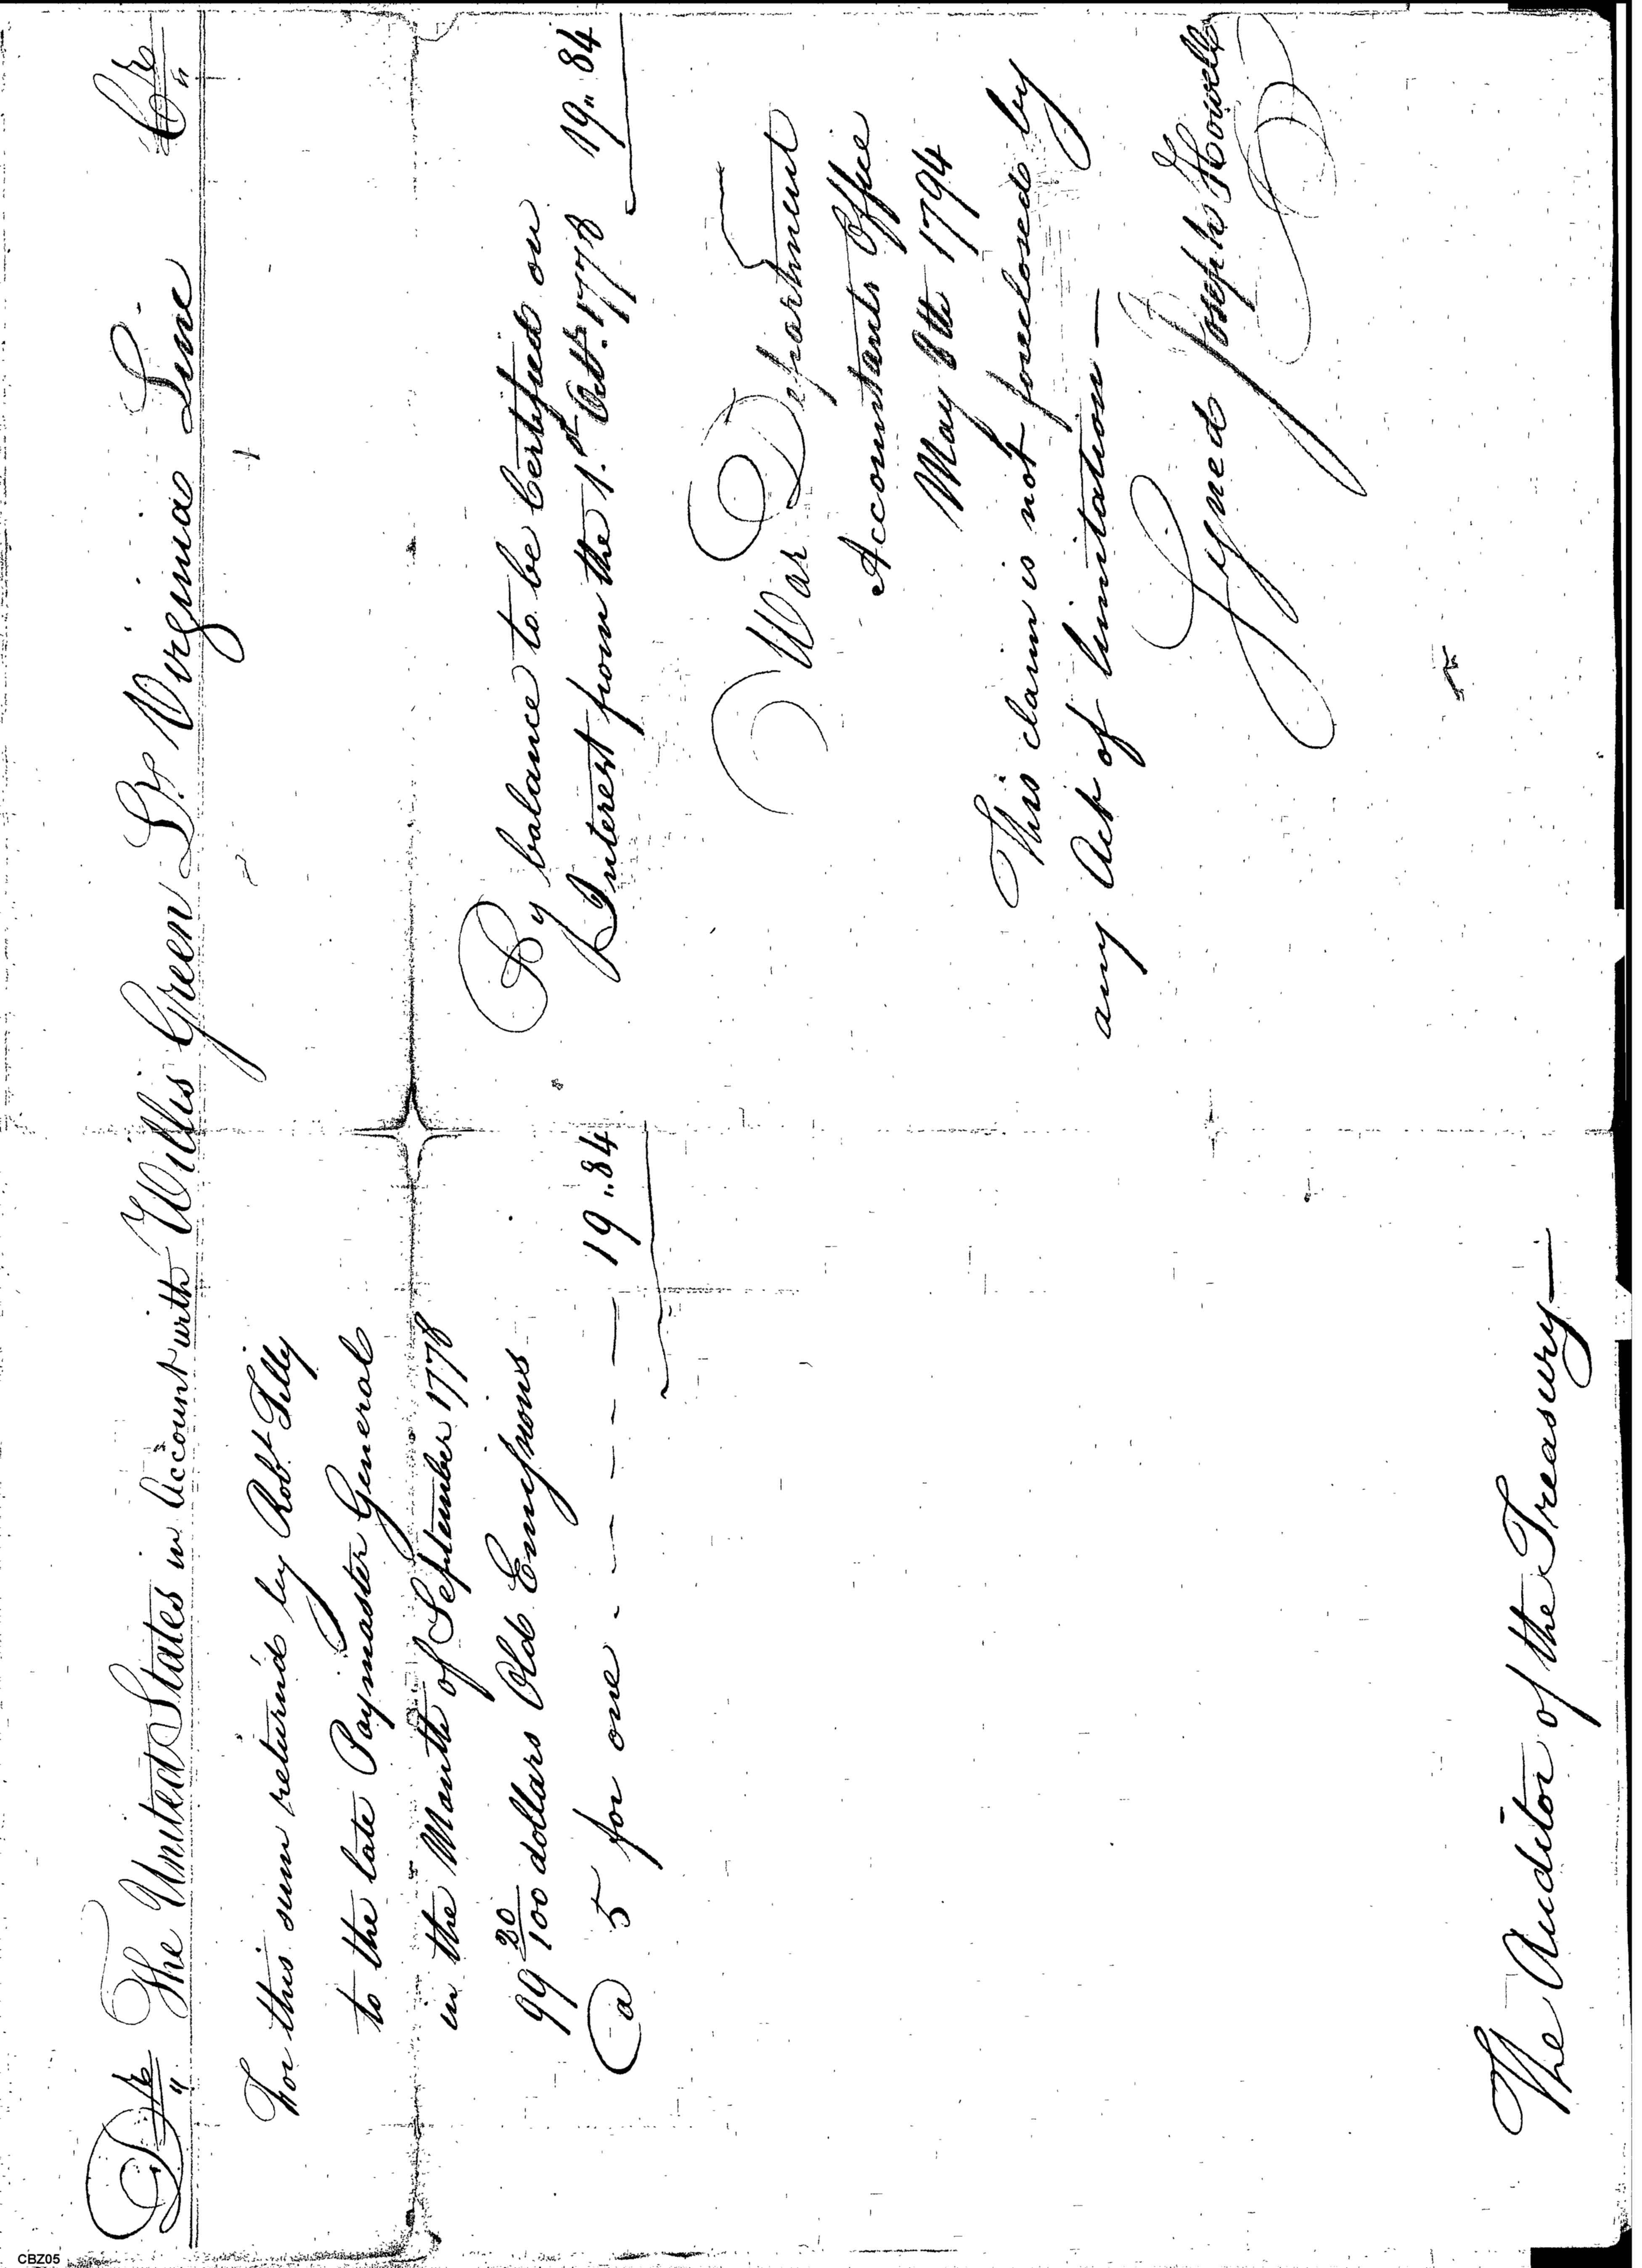 Dr The United States in Account with Willis Green Lt. Virginia Line Cr
For this sum return'd by Robt.
to the late Paymaster General
in the Month of September 1778
99 20/100 dollars Old Emissions
@ 5 for one - - - - - - 19 " 84
By balance to be Certified on
Interest from the 1.st Octr. 1778 19 " 84
War Department
Accountants Office
May 8th 1794
This claim is not foreclosed by
any Act of limitation —
Signed Joseph Howell
The Auditor of the Treasury —
CBZ05